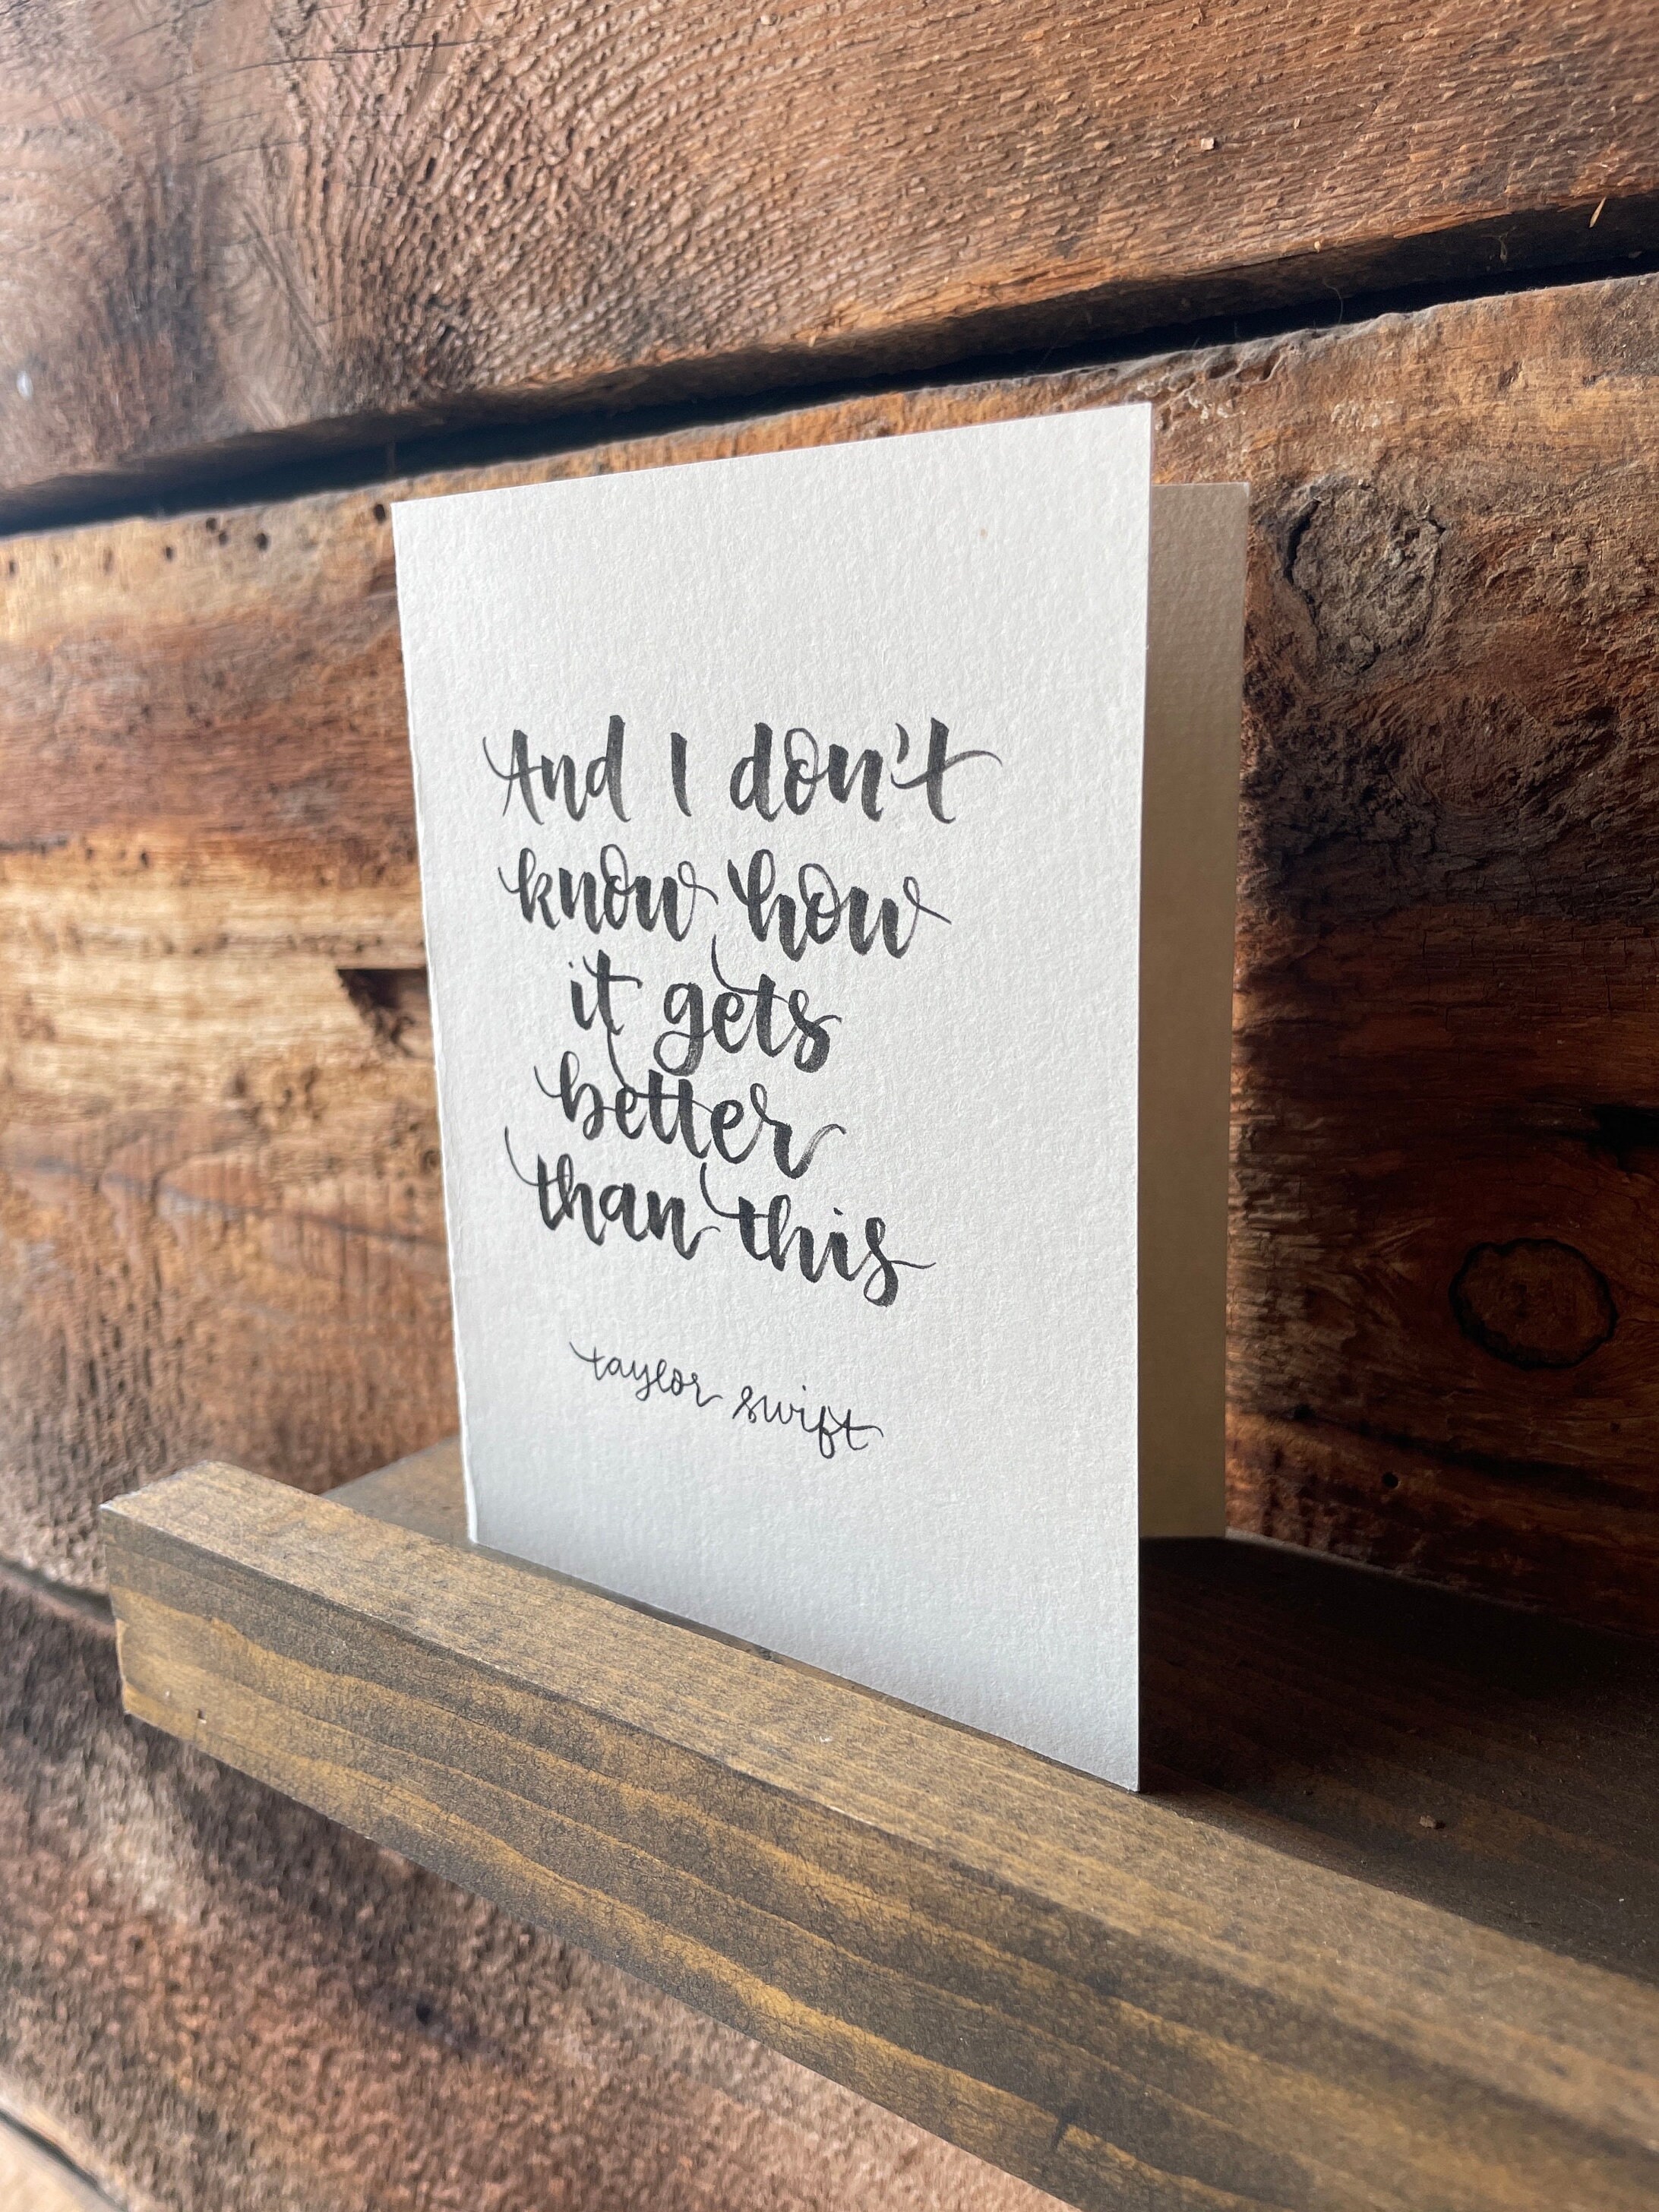 And I don't
know how
it gets
better
than this
taylor swift